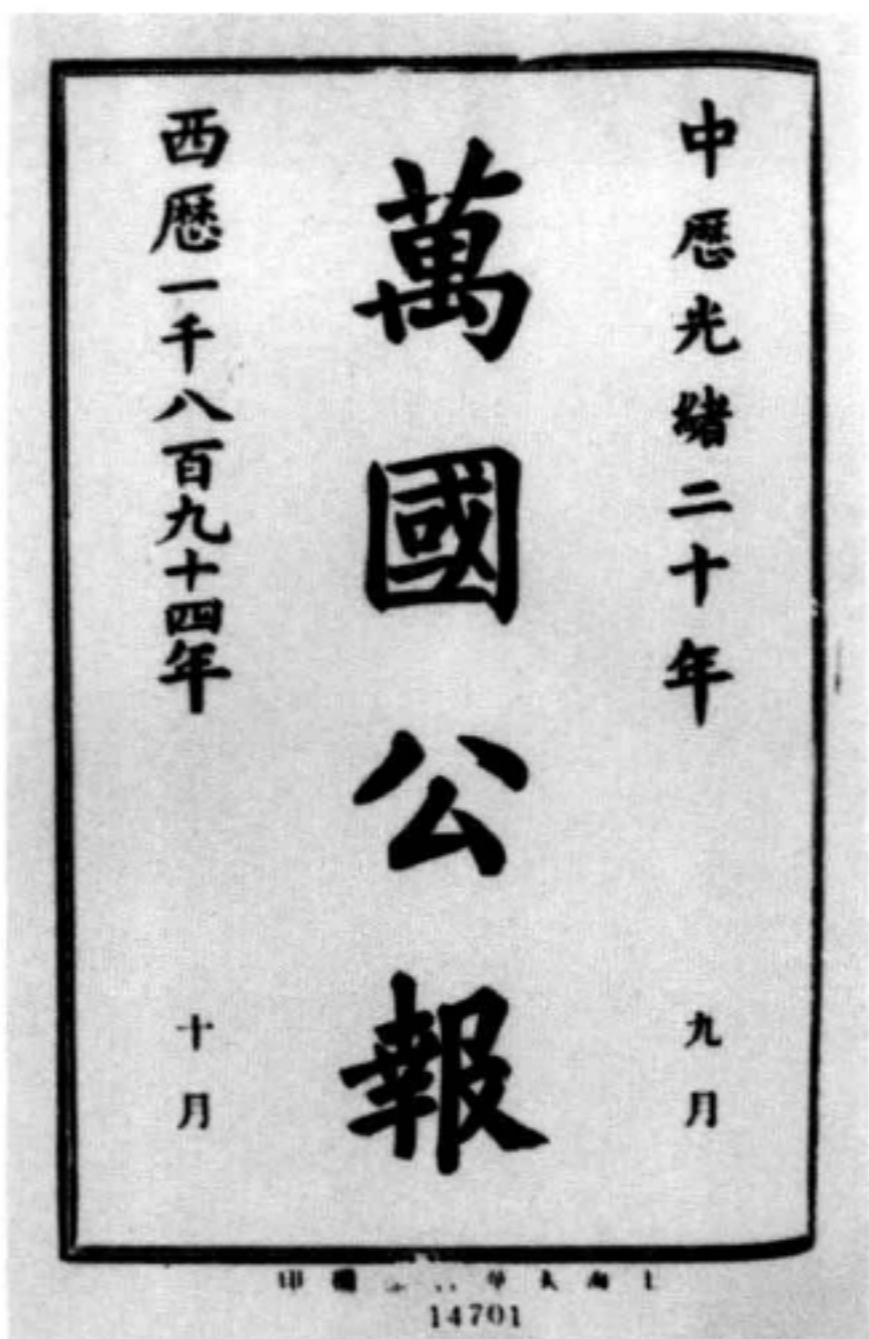 中歷光緒二十年
九月
萬國公報
西歷一千八百九十四年
十月
14701